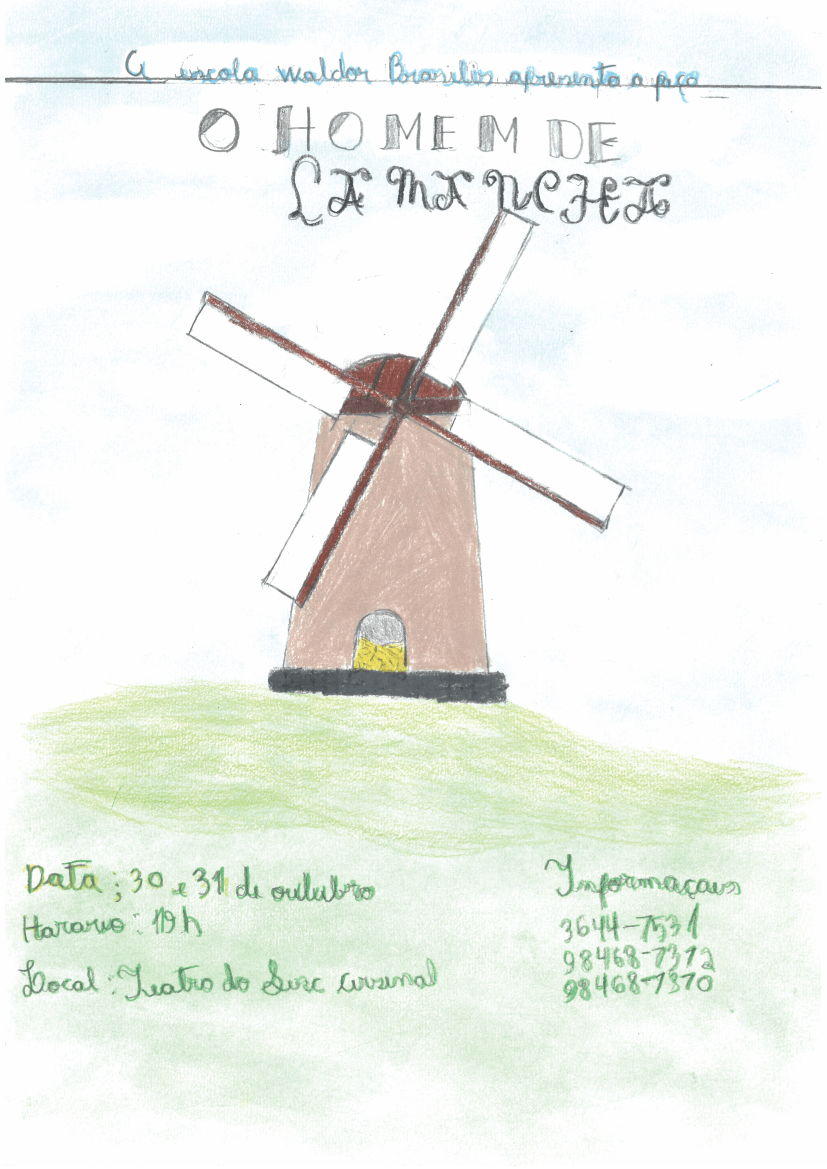 A escola waldor Brasilis apresenta a peça
O HOMEM DE
LA MANCHA
Data : 30 e 31 de outubro
Horario : 19 h
Local : Teatro do Sesc Arsenal
Informaçaus
3644-7531
98468-7372
98468-7370